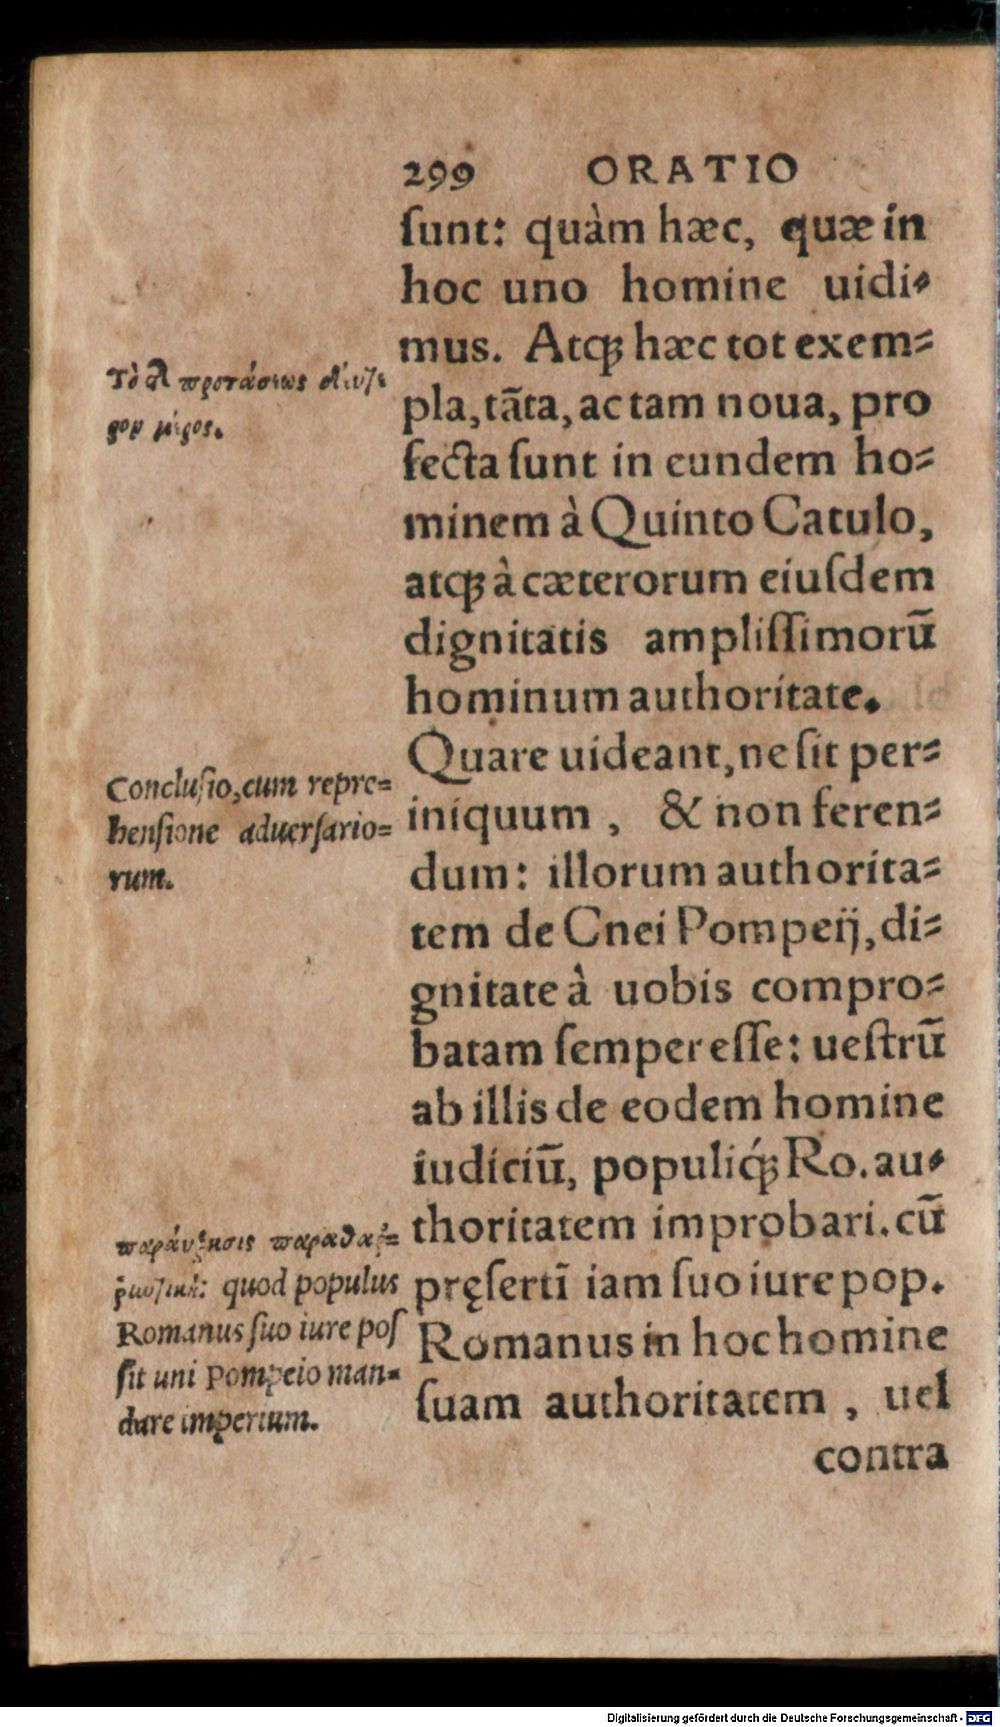 299 ORATIO
ſunt: quàm hæc, quæ in
hoc uno homine uidi⸗
mus. Atqꝫ hæc tot exem⸗
pla, tãta, ac tam noua, pro
fecta ſunt in eundem ho⸗
minem à Quinto Catulo,
atqꝫ à cæterorum eiuſdem
dignitatis ampliſſimorũ
hominum authoritate.
Quare uideant, ne ſit per⸗
iniquum , & non feren⸗
dum: illorum authorita⸗
tem de Cnei Pompeij, di⸗
gnitate à uobis compro⸗
batam ſemper eſſe: ueſtrũ
ab illis de eodem homine
iudiciũ, populiq́ꝫ Ro. au⸗
thoritatem improbari. cũ
pręſertĩ iam ſuo iure pop.
Romanus in hoc homine
ſuam authoritatem , uel
contra
Τὸ προτάσεως
μέρος.
Concluſio, cum repre⸗
henſione aduerſario⸗
rum.
παράυξησις
quod populus
Romanus ſuo iure poſ
ſit uni Pompeio man⸗
dare imperium.
Digitalisierung gefördert durch die Deutsche Forschungsgemeinschaft - DFG